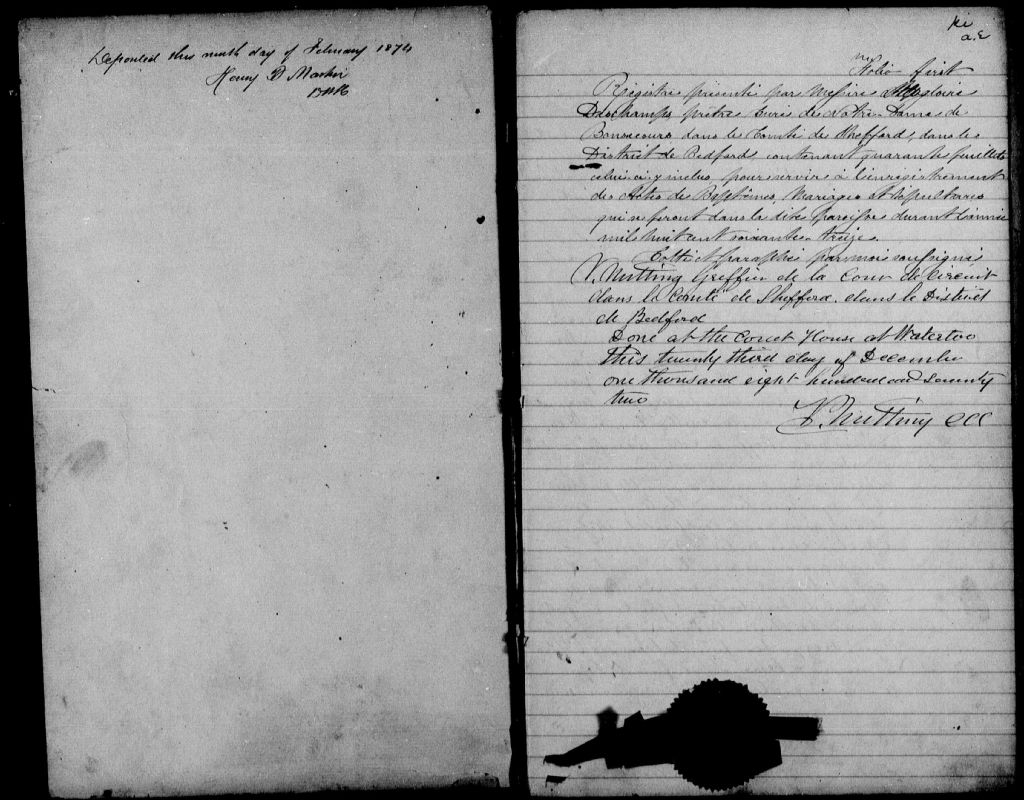 Deposited this ninth day of February 1874
Henry D
Folio first
Régistre présenté par Messire Magloire
Deschamps prêtre curé de Notre-Dame de
Bonsecours dans le Comté de Shefford, dans le
District de Bedford, contenant quarante feuillets
celui ci y inclus pour servir à l'enrégistrement
des Actes de Baptêmes, Mariages et sépultures
qui se feront dans la dite paroisse durant l'année
mil huit cent soixante treize.
Cotté et paraphé par moi soussigné
Nutting Greffier de la Cour de Circuit
dans le comté de Shefford dans le District
de Bedford
Done at the Court House at Waterloo
this twenty third day of December
one thousand eight hundred and seventy
two
Nutting CCC